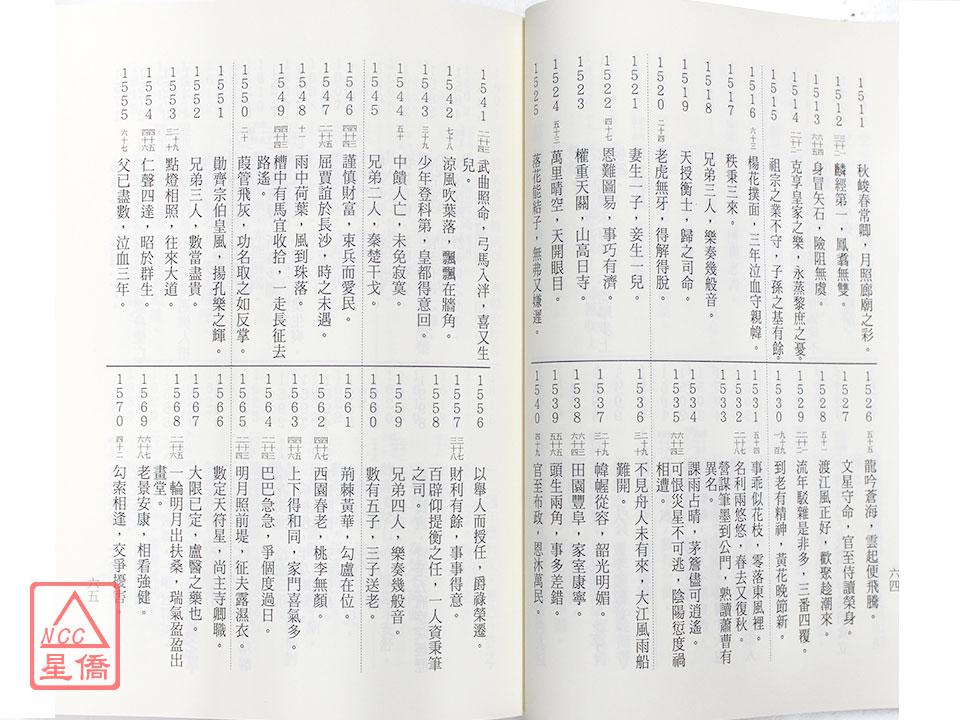 1511 秋峻春常卿，月照廊廟之彩。
1512 麟經第一，鳳翥無雙。
1513 身冒矢石，險阻無虞。
1514 克享皇家之樂，永蒸黎庶之憂。
1515 祖宗之業不守，子孫之基有餘。
1516 楊花撲面，三年泣血守親幃。
1517 秩秉三來。
1518 兄弟三人，樂奏幾般音。
1519 天授衡士，歸之司命。
1520 老虎無牙，得解得脫。
1521 妻生一子，妾生一兒。
1522 恩難圖易，事巧有濟。
1523 權重天關，山高日寺。
1524 萬里晴空，天開眼目。
1525 落花能結子，無弗又嫌遲。
1526 龍吟蒼海，雲起便飛騰。
1527 文星守命，官至侍讀榮身。
1528 渡江風正好，歡聚趁潮來。
1529 流年駁雜是非多，三番四覆。
1530 到老有精神，黃花晚節新。
1531 事乖似花枝，零落東風裡。
1532 名利兩悠悠，春去又復秋。
1533 營謀筆墨到公門，熟讀蕭曹有
異名。
1534 課雨占晴，茅簷儘可逍遙。
1535 可恨災星不可逃，陰陽愆度禍
相遭。
1536 不見舟人未有來，大江風雨船
難開。
1537 幃幄從容，韶光明媚。
1538 田園豐阜，家室康寧。
1539 頭生兩角，事多差錯。
1540 官至布政，恩沐萬民。
六四
1541 武曲照命，弓馬入泮，喜又生
兒。
1542 涼風吹葉落，飄飄在牆角。
1543 少年登科第，皇都得意回。
1544 中饋人亡，未免寂寞。
1545 兄弟二人，秦楚干戈。
1546 謹慎財富，束兵而愛民。
1547 屈賈誼於長沙，時之未遇。
1548 雨中荷葉，風到珠落。
1549 槽中有馬宜收拾，一走長征去
路遙。
1550 葭管飛灰，功名取之如反掌。
1551 勛齊宗伯皇風，揚孔樂之輝。
1552 兄弟三人，數當盡貴。
1553 點燈相照，往來大道。
1554 仁聲四達，昭於群生。
1555 父已盡數，泣血三年。
1556 以舉人而授任，爵祿榮遷。
1557 財利有餘，事事得意。
1558 百辟仰提衡之任，一人資秉筆
之司。
1559 兄弟四人，樂奏幾般音。
1560 數有五子，三子送老。
1561 荊棘黃華，勾盧在位。
1562 西園春老，桃李無顏。
1563 上下得和同，家門喜氣多。
1564 巴巴急急，爭個度過日。
1565 明月照前堤，征夫露濕衣。
1566 數定天符星，尚主寺卿職。
1567 大限已定，盧醫之藥也。
1568 一輪明月出扶桑，瑞氣盈盈出
畫堂。
1569 老景安康，相看強健。
1570 勾索相逢，交爭擾害。
六五
NCC
星僑